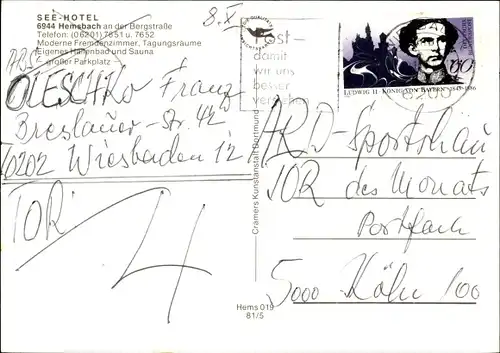 SEE-HOTEL
6944 Hemsbach an der Bergstraße
Telefon: (06201) 7651 u. 7652
Moderne Fremdenzimmer, Tagungsräume
Eigenes Hallenbad und Sauna
großer Parkplatz
8. X
ABS:
OLESCHKO Franz
Breslauer-Str. 42
Wiesbaden 12
TOR
4
Post-
damit
wir uns
besser
verstehen
LUDWIG II · KÖNIG VON BAYERN · 1845-1886
80
Deutsche Bundespost
6200
Cramers Kunstanstalt Dortmund
Hems 019
81/5
ARD-Sportschau
TOR des Monats
Postfach
5000 Köln 100